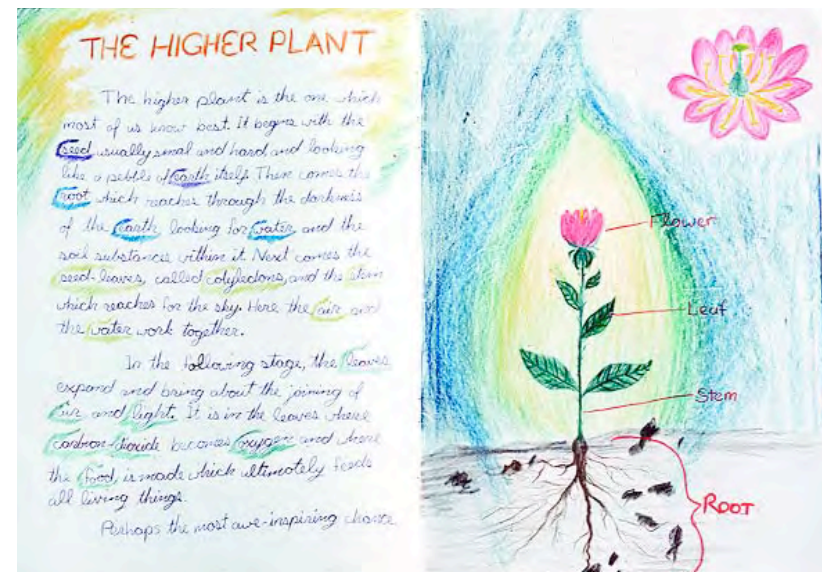 THE HIGHER PLANT
The higher plant is the one which
most of us know best. It begins with the
seed usually smal and hard, and looking
like a pebble of earth itself. Then comes the
root which reaches through the darkness
of the earth looking for water and the
soil substances within it. Next comes the
seed-leaves, called cotyledons, and the stem
which reaches for the sky. Here the air and
the water work together.
In the following stage, the leaves
expand and bring about the joining of
air and light. It is in the leaves where
carbon-dioxide becomes oxygen and where
the food, is made which ultimotely feeds
all living things.
Perhaps the most awe-inspiring chance
Flower
Leaf
Stem
ROOT